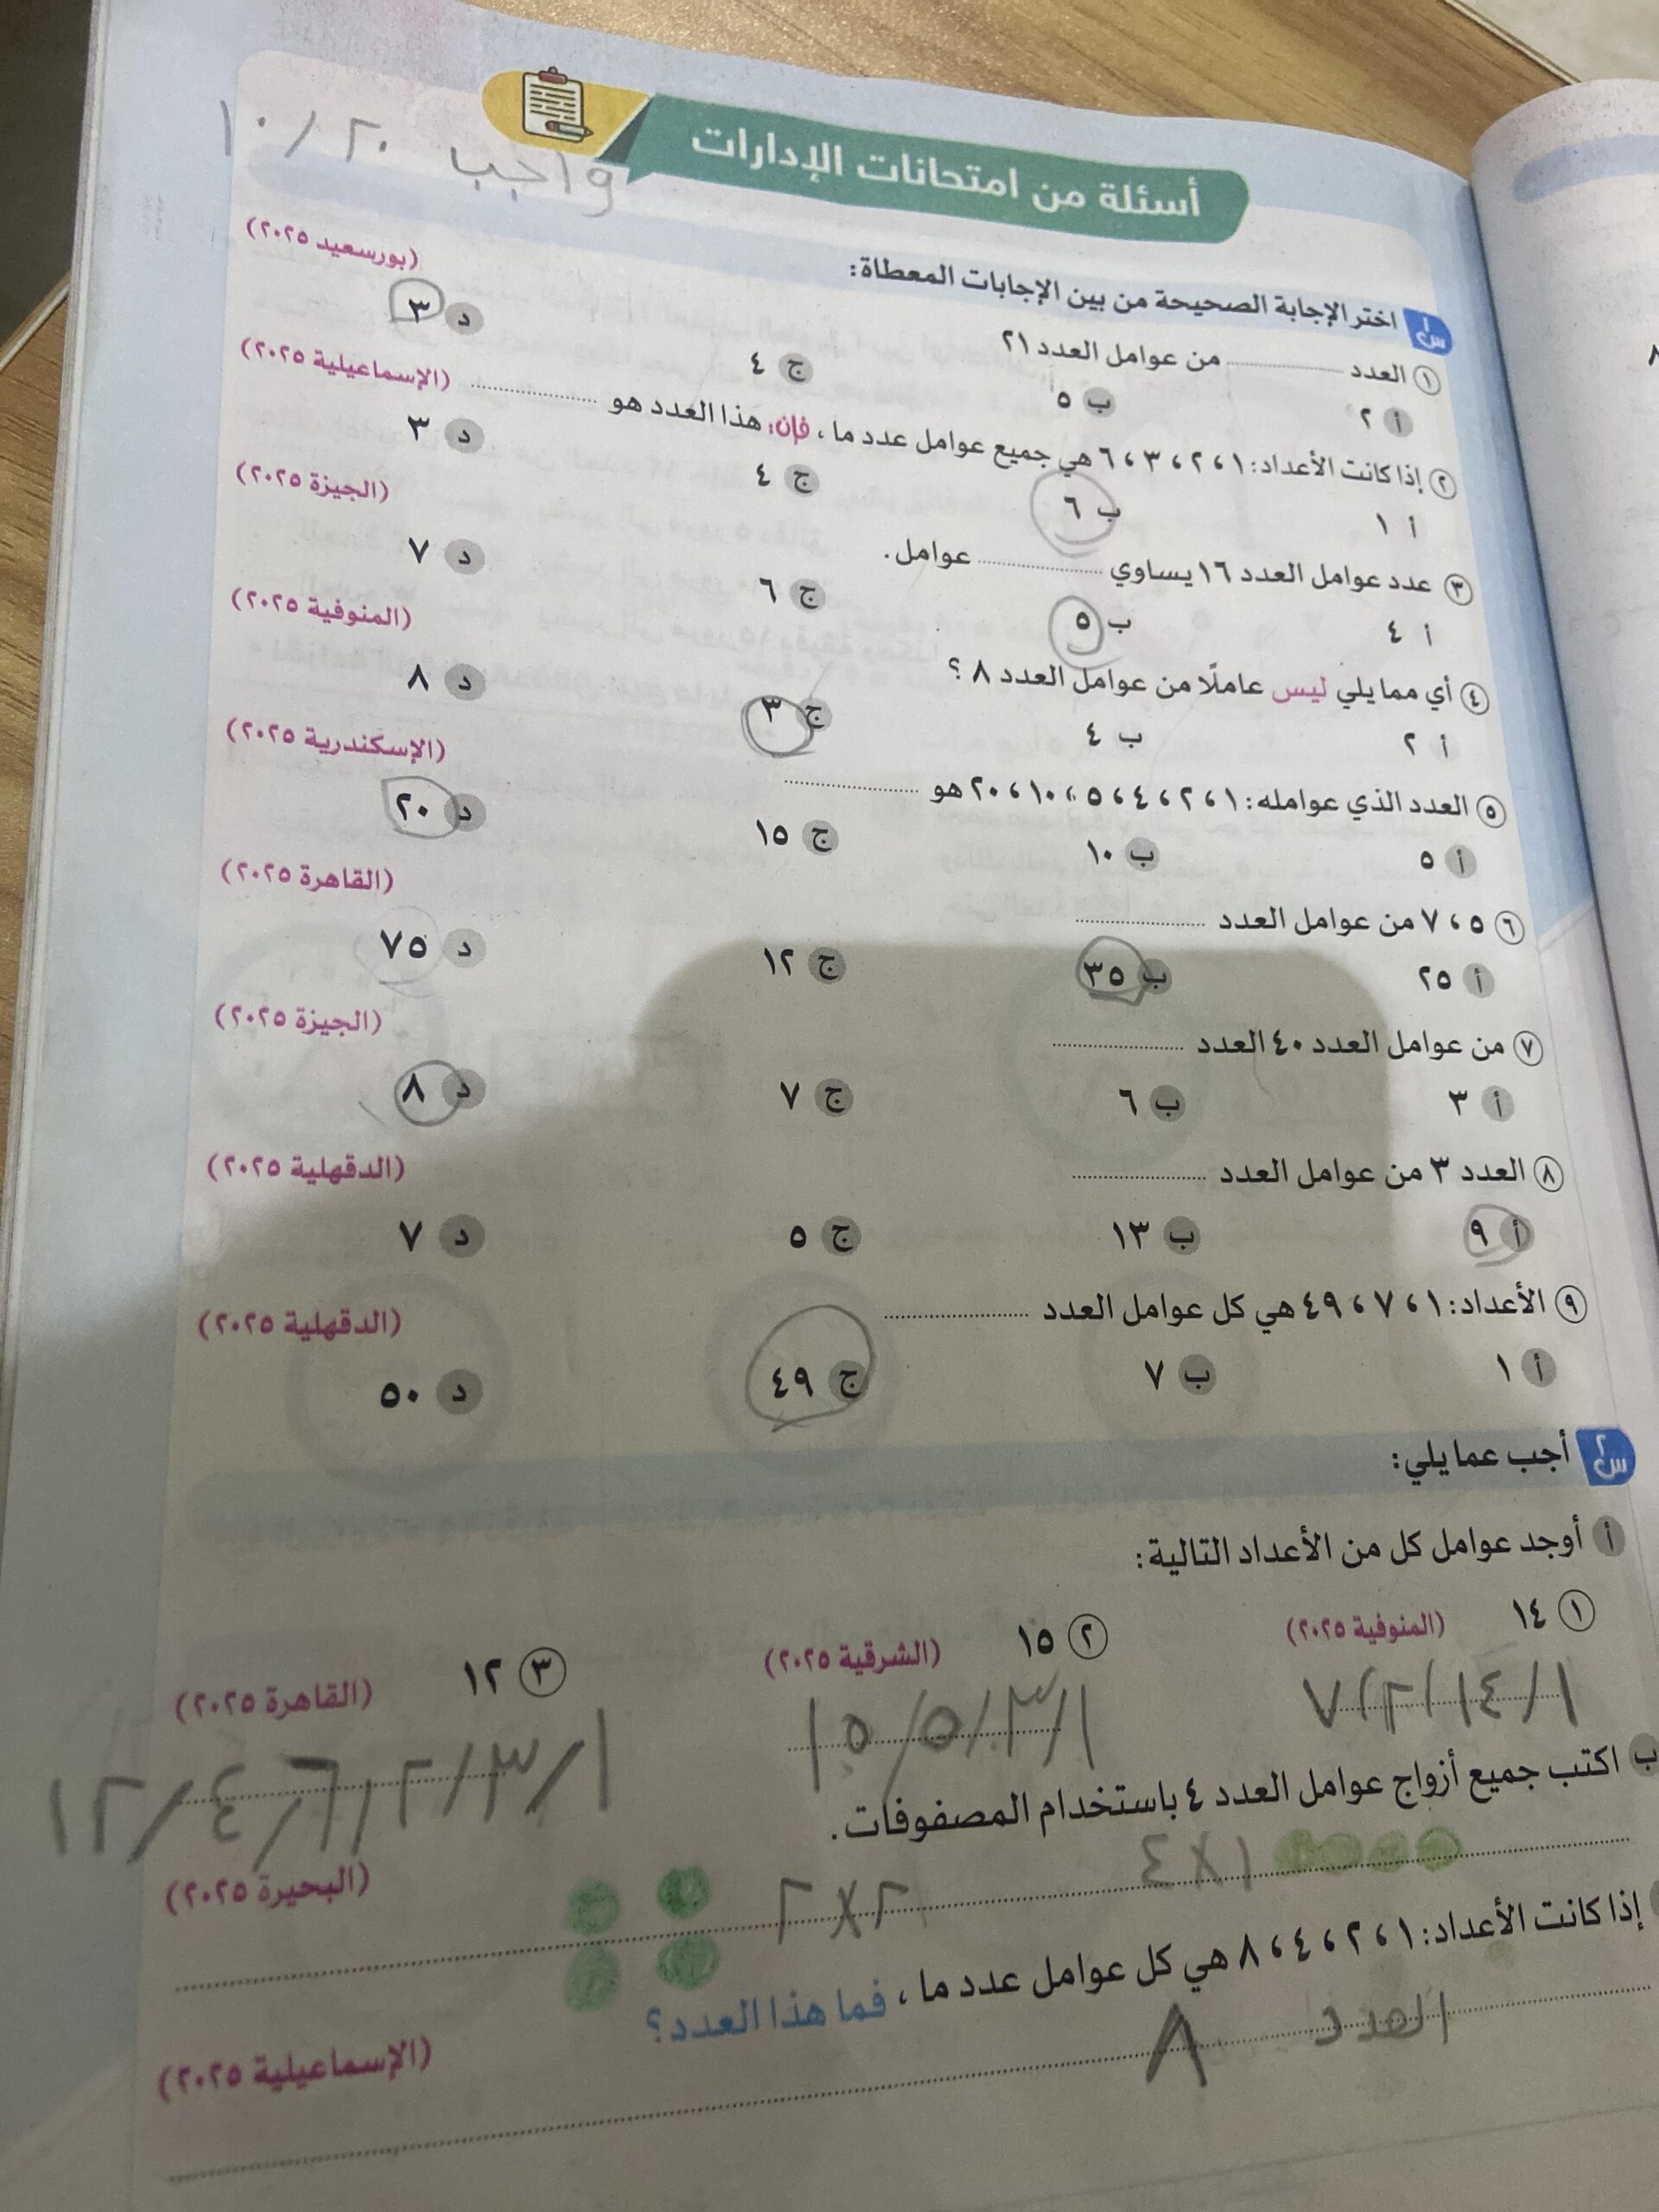 أسئلة من امتحانات الإدارات
واجب ٢٠/١٠
س١ اختر الإجابة الصحيحة من بين الإجابات المعطاة:
١ العدد .......... من عوامل العدد ٢١ (بورسعيد ٢٠٢٥)
أ ٢ ب ٥ ج ٤ د ٣
٢ إذا كانت الأعداد: ١ ، ٢ ، ٣ ، ٦ هي جميع عوامل عدد ما ، فإن: هذا العدد هو .......... (الإسماعيلية ٢٠٢٥)
أ ١ ب ٦ ج ٤ د ٣
٣ عدد عوامل العدد ١٦ يساوي .......... عوامل. (الجيزة ٢٠٢٥)
أ ٤ ب ٥ ج ٦ د ٧
٤ أي مما يلي ليس عاملًا من عوامل العدد ٨ ؟ (المنوفية ٢٠٢٥)
أ ٢ ب ٤ ج ٣ د ٨
٥ العدد الذي عوامله: ١ ، ٢ ، ٤ ، ٥ ، ١٠ ، ٢٠ هو .......... (الإسكندرية ٢٠٢٥)
أ ٥ ب ١٠ ج ١٥ د ٢٠
٦ ٥ ، ٧ من عوامل العدد .......... (القاهرة ٢٠٢٥)
أ ٢٥ ب ٣٥ ج ١٢ د ٧٥
٧ من عوامل العدد ٤٠ العدد .......... (الجيزة ٢٠٢٥)
أ ٣ ب ٦ ج ٧ د ٨
٨ العدد ٣ من عوامل العدد .......... (الدقهلية ٢٠٢٥)
أ ٩ ب ١٣ ج ٥ د ٧
٩ الأعداد: ١ ، ٧ ، ٤٩ هي كل عوامل العدد .......... (الدقهلية ٢٠٢٥)
أ ١ ب ٧ ج ٤٩ د ٥٠
س٢ أجب عما يلي:
أ أوجد عوامل كل من الأعداد التالية:
١ ١٤ (المنوفية ٢٠٢٥) ٢ ١٥ (الشرقية ٢٠٢٥) ٣ ١٢ (القاهرة ٢٠٢٥)
١/١٤/٢/٧ ١/٣/٥/١٥ ١/٣/٢/٦/٤/١٢
ب اكتب جميع أزواج عوامل العدد ٤ باستخدام المصفوفات. (البحيرة ٢٠٢٥)
١×٤ ٢×٢
إذا كانت الأعداد: ١ ، ٢ ، ٤ ، ٨ هي كل عوامل عدد ما ، فما هذا العدد؟ (الإسماعيلية ٢٠٢٥)
العدد ٨